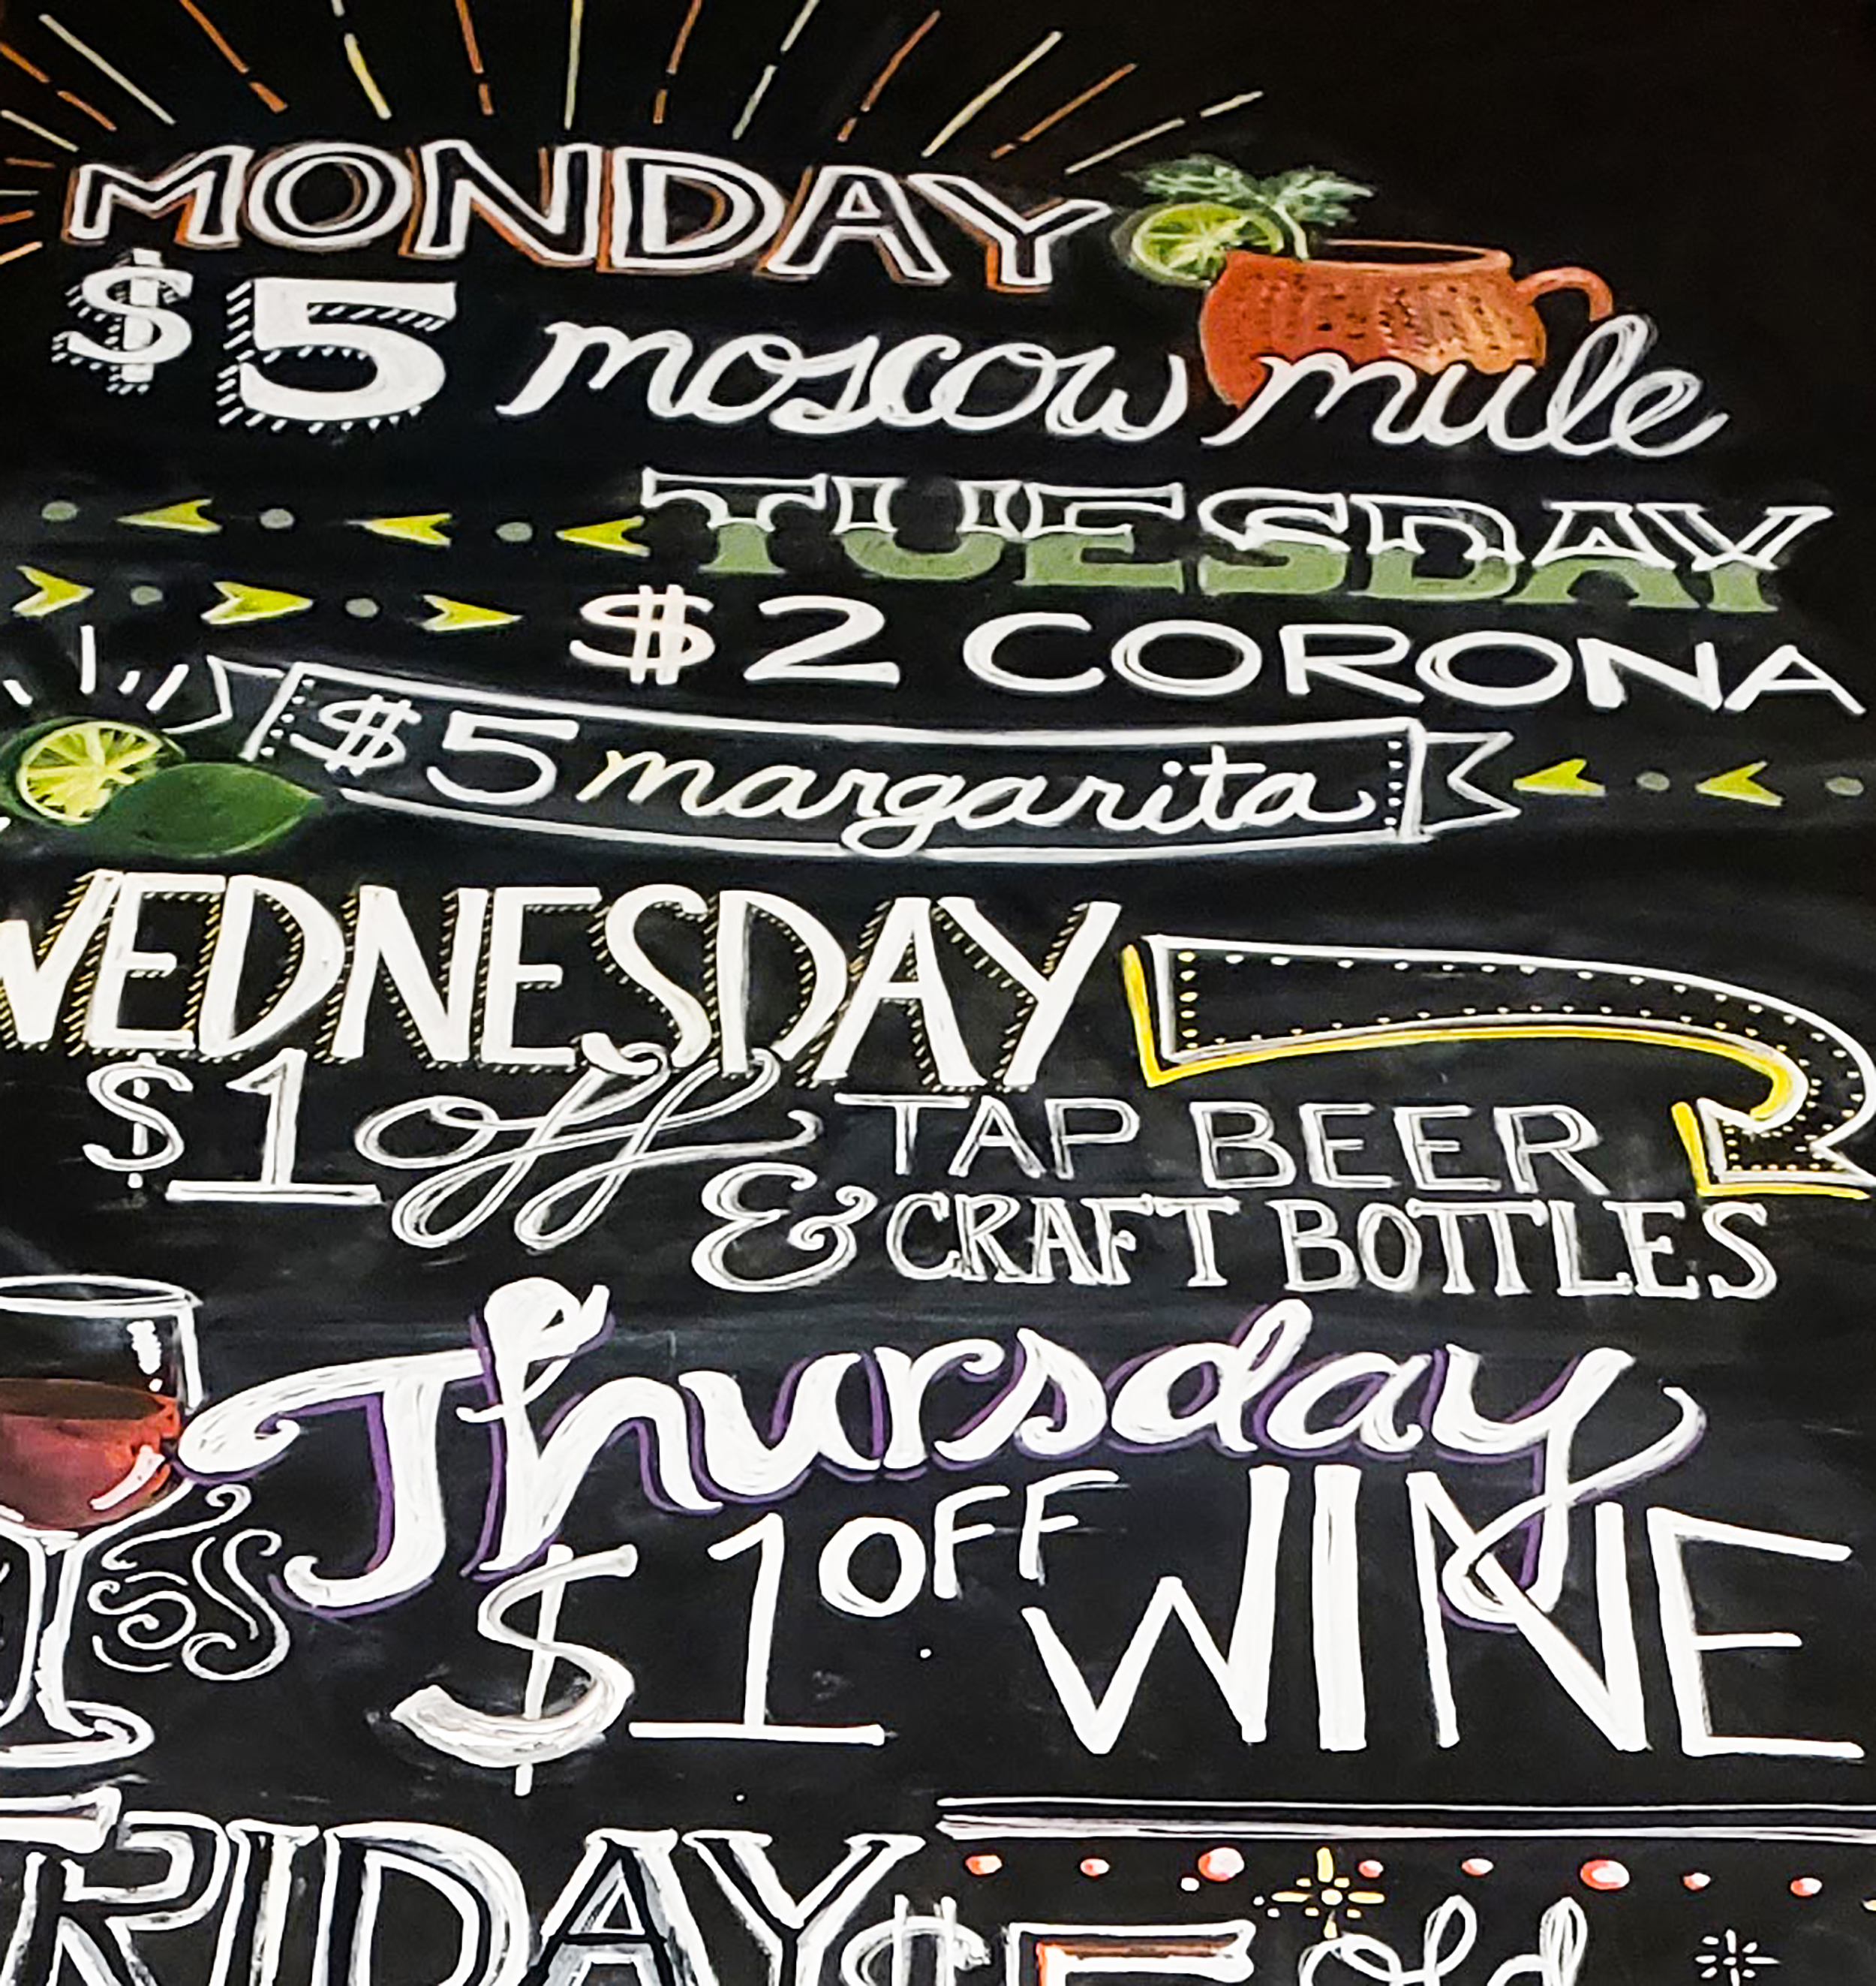 MONDAY
$5 moscow mule
TUESDAY
$2 CORONA
$5 margarita
WEDNESDAY
$1 off TAP BEER
& CRAFT BOTTLES
Thursday
$1 OFF WINE
FRIDAY $5 old